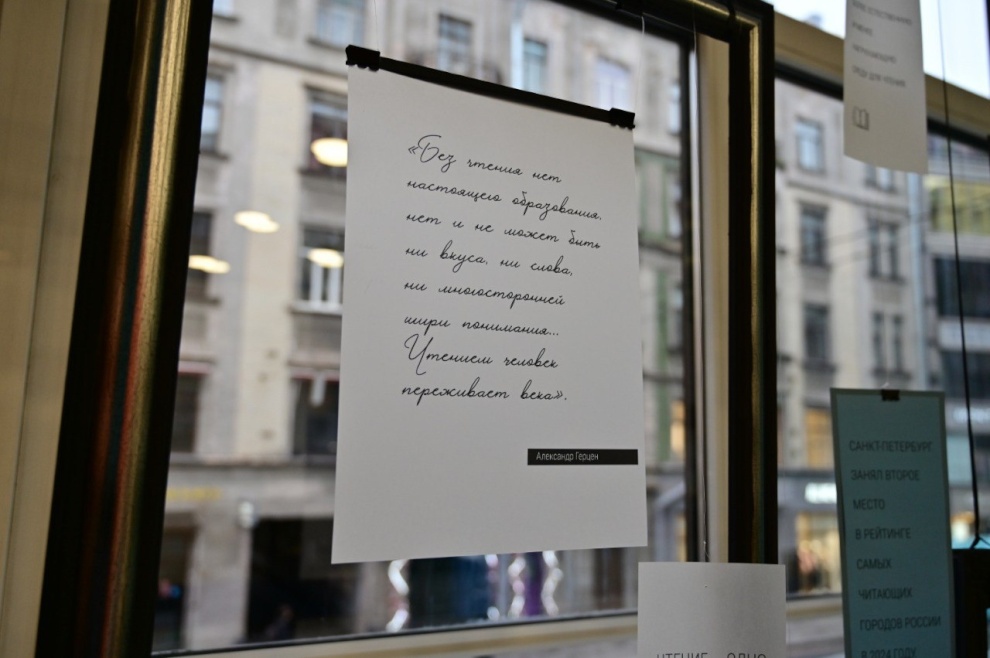 «Без чтения нет
настоящего образования,
нет и не может быть
ни вкуса, ни слова,
ни многосторонней
шири понимания...
Чтением человек
переживает века».
Александр Герцен
СРЕДУ ДЛЯ ЧТЕНИЯ
САНКТ-ПЕТЕРБУРГ
ЗАНЯЛ ВТОРОЕ
МЕСТО
В РЕЙТИНГЕ
САМЫХ
ЧИТАЮЩИХ
ГОРОДОВ РОССИИ
В 2024 ГОДУ
ЧТЕНИЕ ОДНО